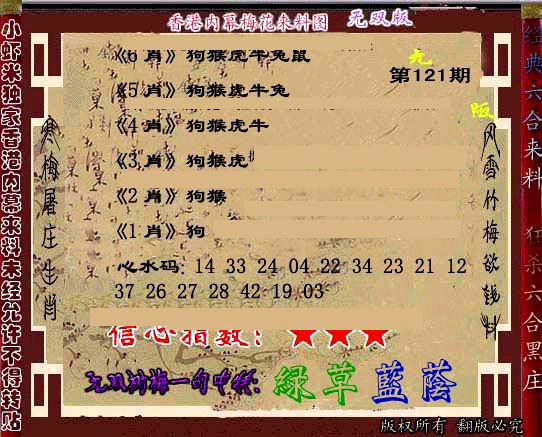 香港内幕梅花来料图 无双版
《6 肖》狗猴虎牛兔鼠
第121期
《5 肖》狗猴虎牛兔
《4 肖》狗猴虎牛
《3 肖》狗猴虎
《2 肖》狗猴
《1 肖》狗
心水码: 14 33 24 04 22 34 23 21 12
37 26 27 28 42 19 03
信心指数: ★★★
綠草藍蔭
版权所有 翻版必究
小虾米独家香港内幕来料未经允许不得转贴
寒梅屠庄生肖
风雪竹梅欲钱料
经典六合来料 狂杀六合黑庄